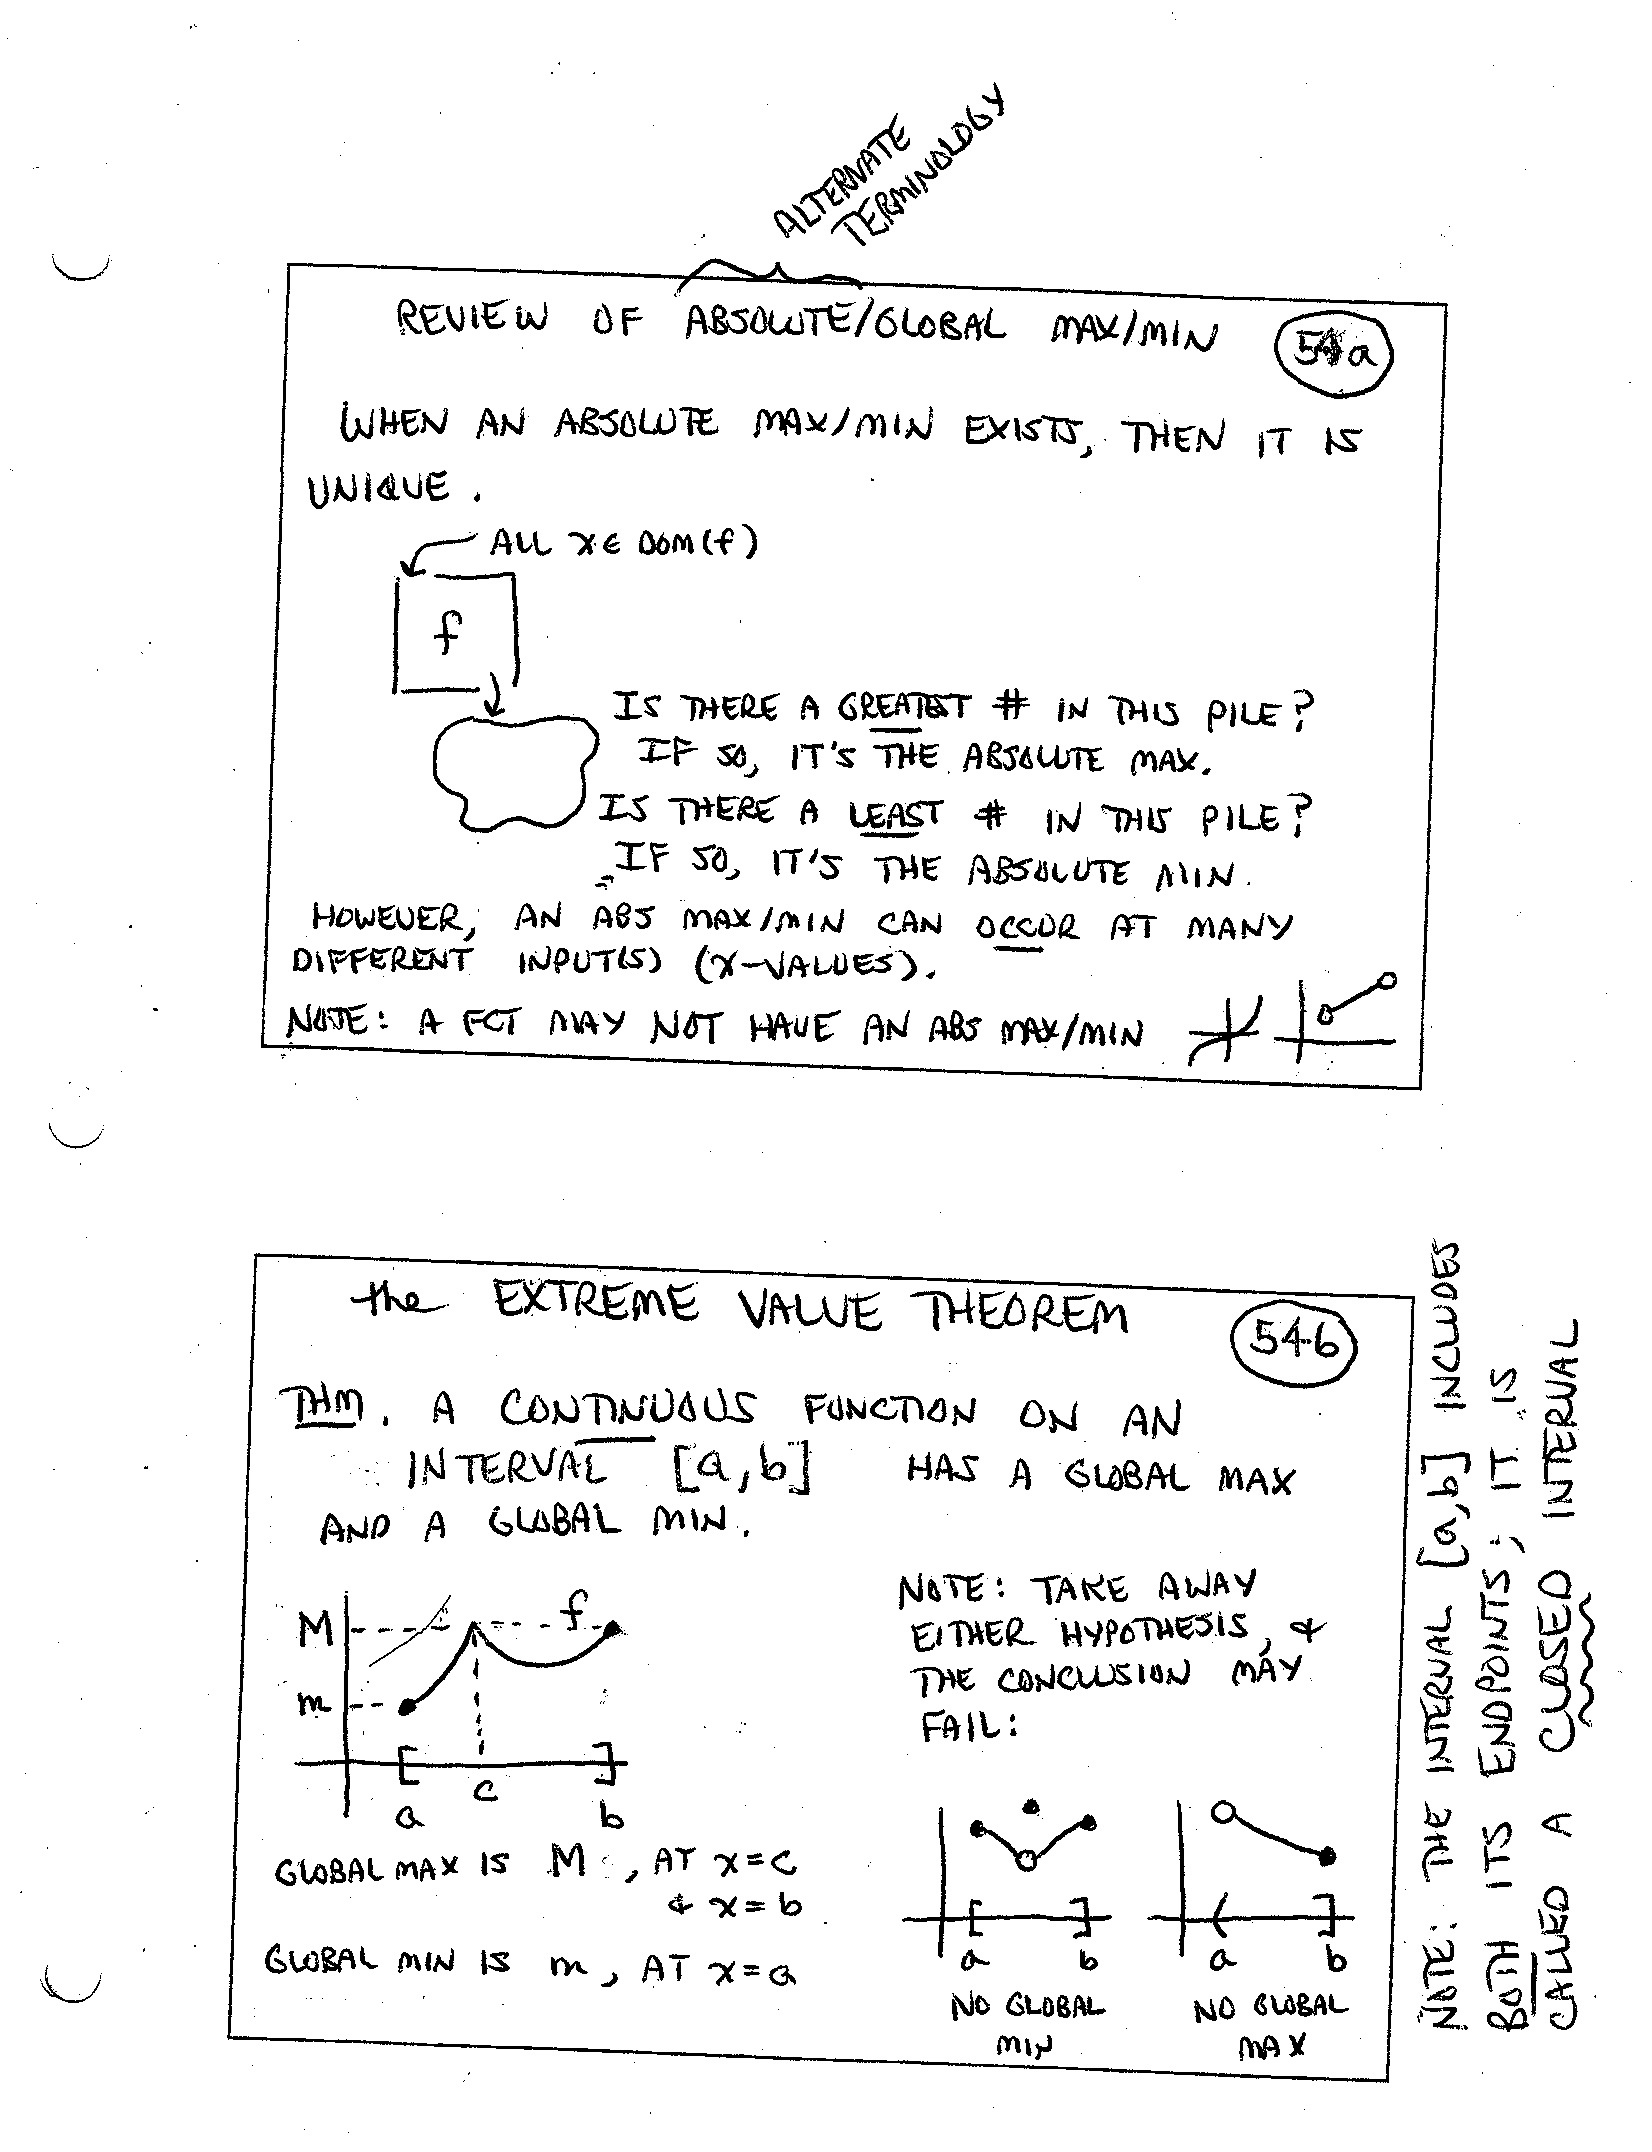 ALTERNATE
TERMINOLOGY
REVIEW OF ABSOLUTE/GLOBAL MAX/MIN
54a
WHEN AN ABSOLUTE MAX/MIN EXISTS, THEN IT IS
UNIQUE.
ALL x∈DOM(f)
f
IS THERE A GREATEST # IN THIS PILE?
IF SO, IT'S THE ABSOLUTE MAX.
IS THERE A LEAST # IN THIS PILE?
IF SO, IT'S THE ABSOLUTE MIN.
HOWEVER, AN ABS MAX/MIN CAN OCCUR AT MANY
DIFFERENT INPUT(S) (X-VALUES).
NOTE: A FCT MAY NOT HAVE AN ABS MAX/MIN
the EXTREME VALUE THEOREM
54b
THM. A CONTINUOUS FUNCTION ON AN
INTERVAL [a,b] HAS A GLOBAL MAX
AND A GLOBAL MIN.
M
f
m
c
a b
GLOBAL MAX IS M, AT x=c
& x=b
GLOBAL MIN IS m, AT x=a
NOTE: TAKE AWAY
EITHER HYPOTHESIS, &
THE CONCLUSION MAY
FAIL:
a b
NO GLOBAL
MIN
a b
NO GLOBAL
MAX
NOTE: THE INTERVAL [a,b] INCLUDES
BOTH ITS ENDPOINTS; IT IS
CALLED A CLOSED INTERVAL